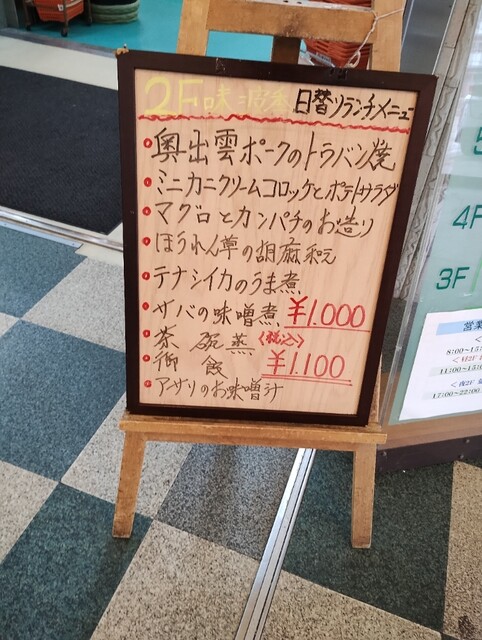 2F 味波季 日替ランチメニュー
奥出雲ポークのトラバン焼
ミニカニクリームコロッケとポテトサラダ
マグロとカンパチのお造り
ほうれん草の胡麻和え
テナシイカのうま煮
サバの味噌煮 ¥1.000
茶碗蒸 〈税込〉
御飯 ¥1.100
アサリのお味噌汁
4F
3F
営業
8:00~15:
11:00~15:0
17:00~22:00